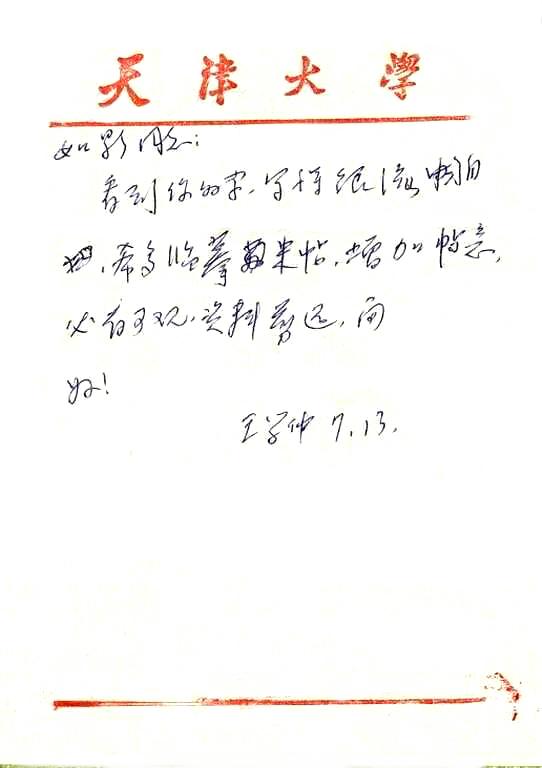 天津大学
如影同志:
看到你的字,写得很流畅自
然,希多临摹米帖,增加帖意,
必有可观,资料寄还,问
好!
王学仲 7.13.